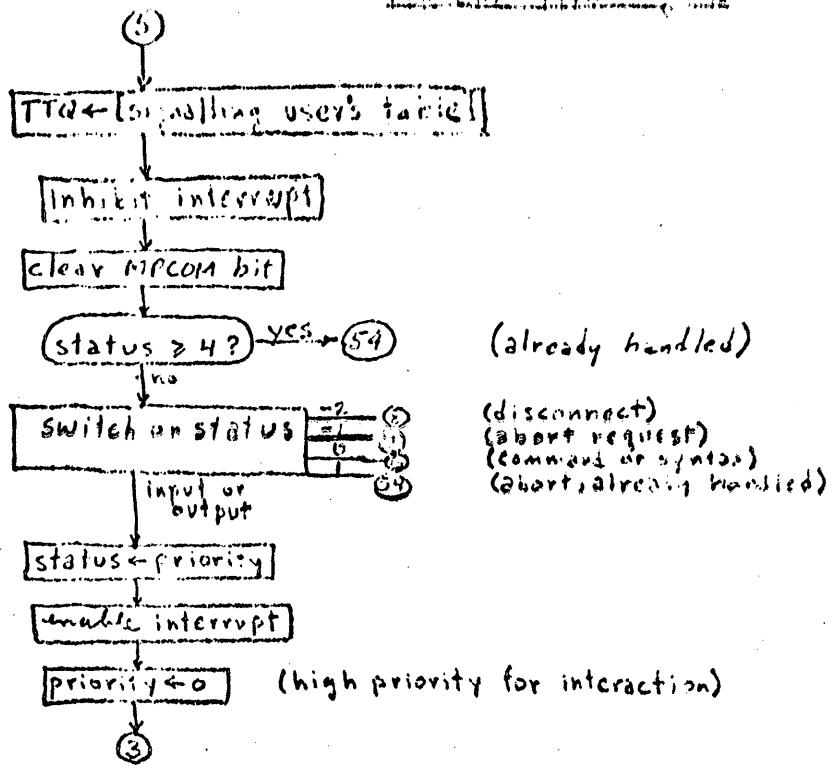 5
TTQ ← [signalling user's table]
inhibit interrupt
clear MPCOM bit
status ≥ 4? yes 54 (already handled)
no
switch on status -2 (disconnect)
-1 (abort request)
0 (command or syntax)
1 54 (abort, already handled)
input or
output
status ← priority
enable interrupt
priority ← 0 (high priority for interaction)
3